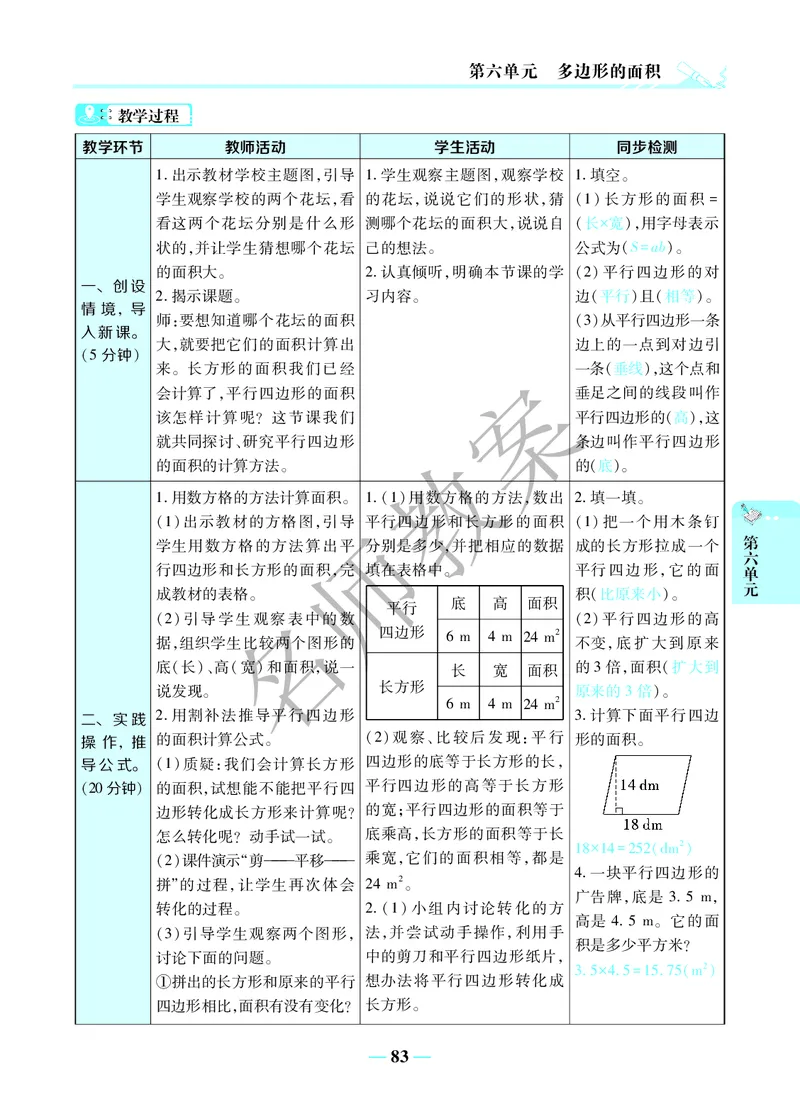 第六单元 多边形的面积
教学过程
教学环节 教师活动 学生活动 同步检测
一、创设
情境,导
入新课。
(5 分钟)
1. 出示教材学校主题图,引导
学生观察学校的两个花坛,看
看这两个花坛分别是什么形
状的,并让学生猜想哪个花坛
的面积大。
2. 揭示课题。
师:要想知道哪个花坛的面积
大,就要把它们的面积计算出
来。长方形的面积我们已经
会计算了,平行四边形的面积
该怎样计算呢? 这节课我们
就共同探讨、研究平行四边形
的面积的计算方法。
1. 学生观察主题图,观察学校
的花坛,说说它们的形状,猜
测哪个花坛的面积大,说说自
己的想法。
2. 认真倾听,明确本节课的学
习内容。
1. 填空。
(1)长方形的面积=
(长×宽),用字母表示
公式为(S=ab)。
(2)平行四边形的对
边(平行)且(相等)。
(3)从平行四边形一条
边上的一点到对边引
一条(垂线),这个点和
垂足之间的线段叫作
平行四边形的(高),这
条边叫作平行四边形
的(底)。
二、实践
操作,推
导公式。
(20 分钟)
1. 用数方格的方法计算面积。
(1)出示教材的方格图,引导
学生用数方格的方法算出平
行四边形和长方形的面积,完
成教材的表格。
(2)引导学生观察表中的数
据,组织学生比较两个图形的
底(长)、高(宽)和面积,说一
说发现。
2. 用割补法推导平行四边形
的面积计算公式。
(1)质疑:我们会计算长方形
的面积,试想能不能把平行四
边形转化成长方形来计算呢?
怎么转化呢? 动手试一试。
(2)课件演示“剪——平移——
拼”的过程,让学生再次体会
转化的过程。
(3)引导学生观察两个图形,
讨论下面的问题。
①拼出的长方形和原来的平行
四边形相比,面积有没有变化?
1. (1)用数方格的方法,数出
平行四边形和长方形的面积
分别是多少,并把相应的数据
填在表格中。
平行
四边形
底 高 面积
6 m 4 m 24 m²
长方形
长 宽 面积
6 m 4 m 24 m²
(2)观察、比较后发现:平行
四边形的底等于长方形的长,
平行四边形的高等于长方形
的宽;平行四边形的面积等于
底乘高,长方形的面积等于长
乘宽,它们的面积相等,都是
24 m²。
2. (1)小组内讨论转化的方
法,并尝试动手操作,利用手
中的剪刀和平行四边形纸片,
想办法将平行四边形转化成
长方形。
2. 填一填。
(1)把一个用木条钉
成的长方形拉成一个
平行四边形,它的面
积(比原来小)。
(2)平行四边形的高
不变,底扩大到原来
的 3 倍,面积(扩大到
原来的 3 倍)。
3. 计算下面平行四边
形的面积。
14 dm
18 dm
18×14=252(dm²)
4. 一块平行四边形的
广告牌,底是 3.5 m,
高是 4.5 m。它的面
积是多少平方米?
3.5×4.5=15.75(m²)
第六单元
名师教案
— 83 —